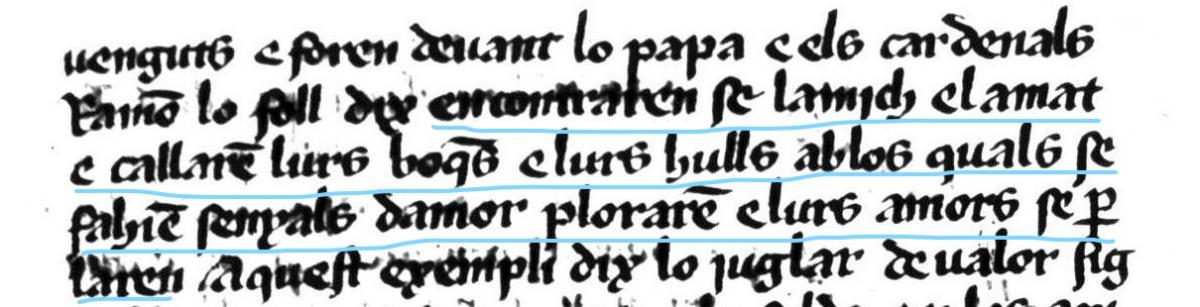 uenguts e foren deuant lo papa e els cardenals
Ramō lo foll dix encontraren se lamich elamat
e callarē lurs boq̄s e lurs hulls ablos quals se
fahiē senyals damor plorarē e lurs amors se ꝑ
laren Aquest exempli dix lo juglar de ualor sig